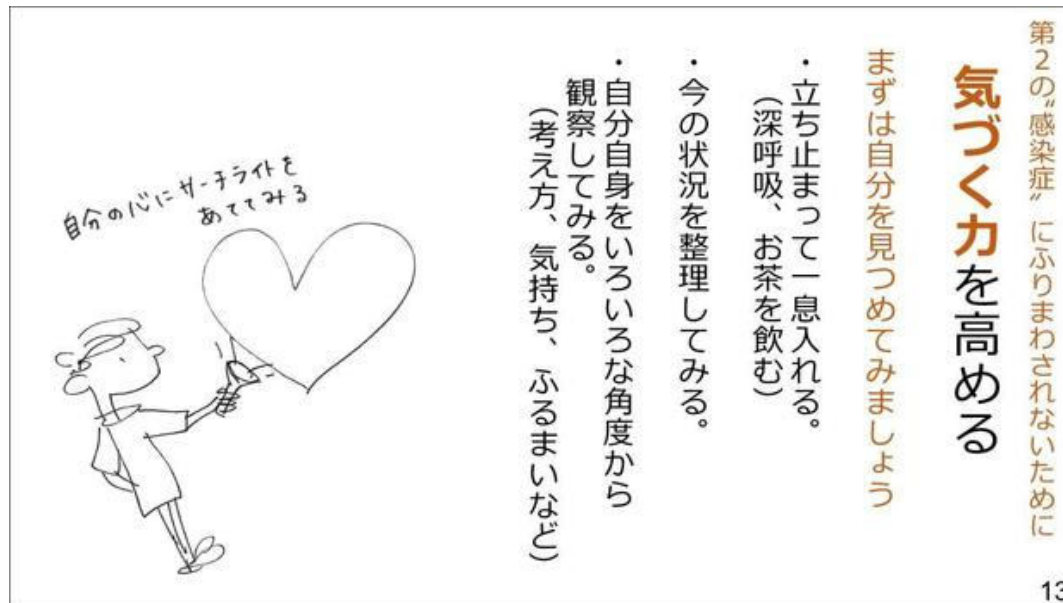 第2の“感染症”にふりまわされないために
気づく力を高める
まずは自分を見つめてみましょう
・立ち止まって一息入れる。
（深呼吸、お茶を飲む）
・今の状況を整理してみる。
・自分自身をいろいろな角度から
観察してみる。
（考え方、気持ち、ふるまいなど）
自分の心にサーチライトを
あててみる
13